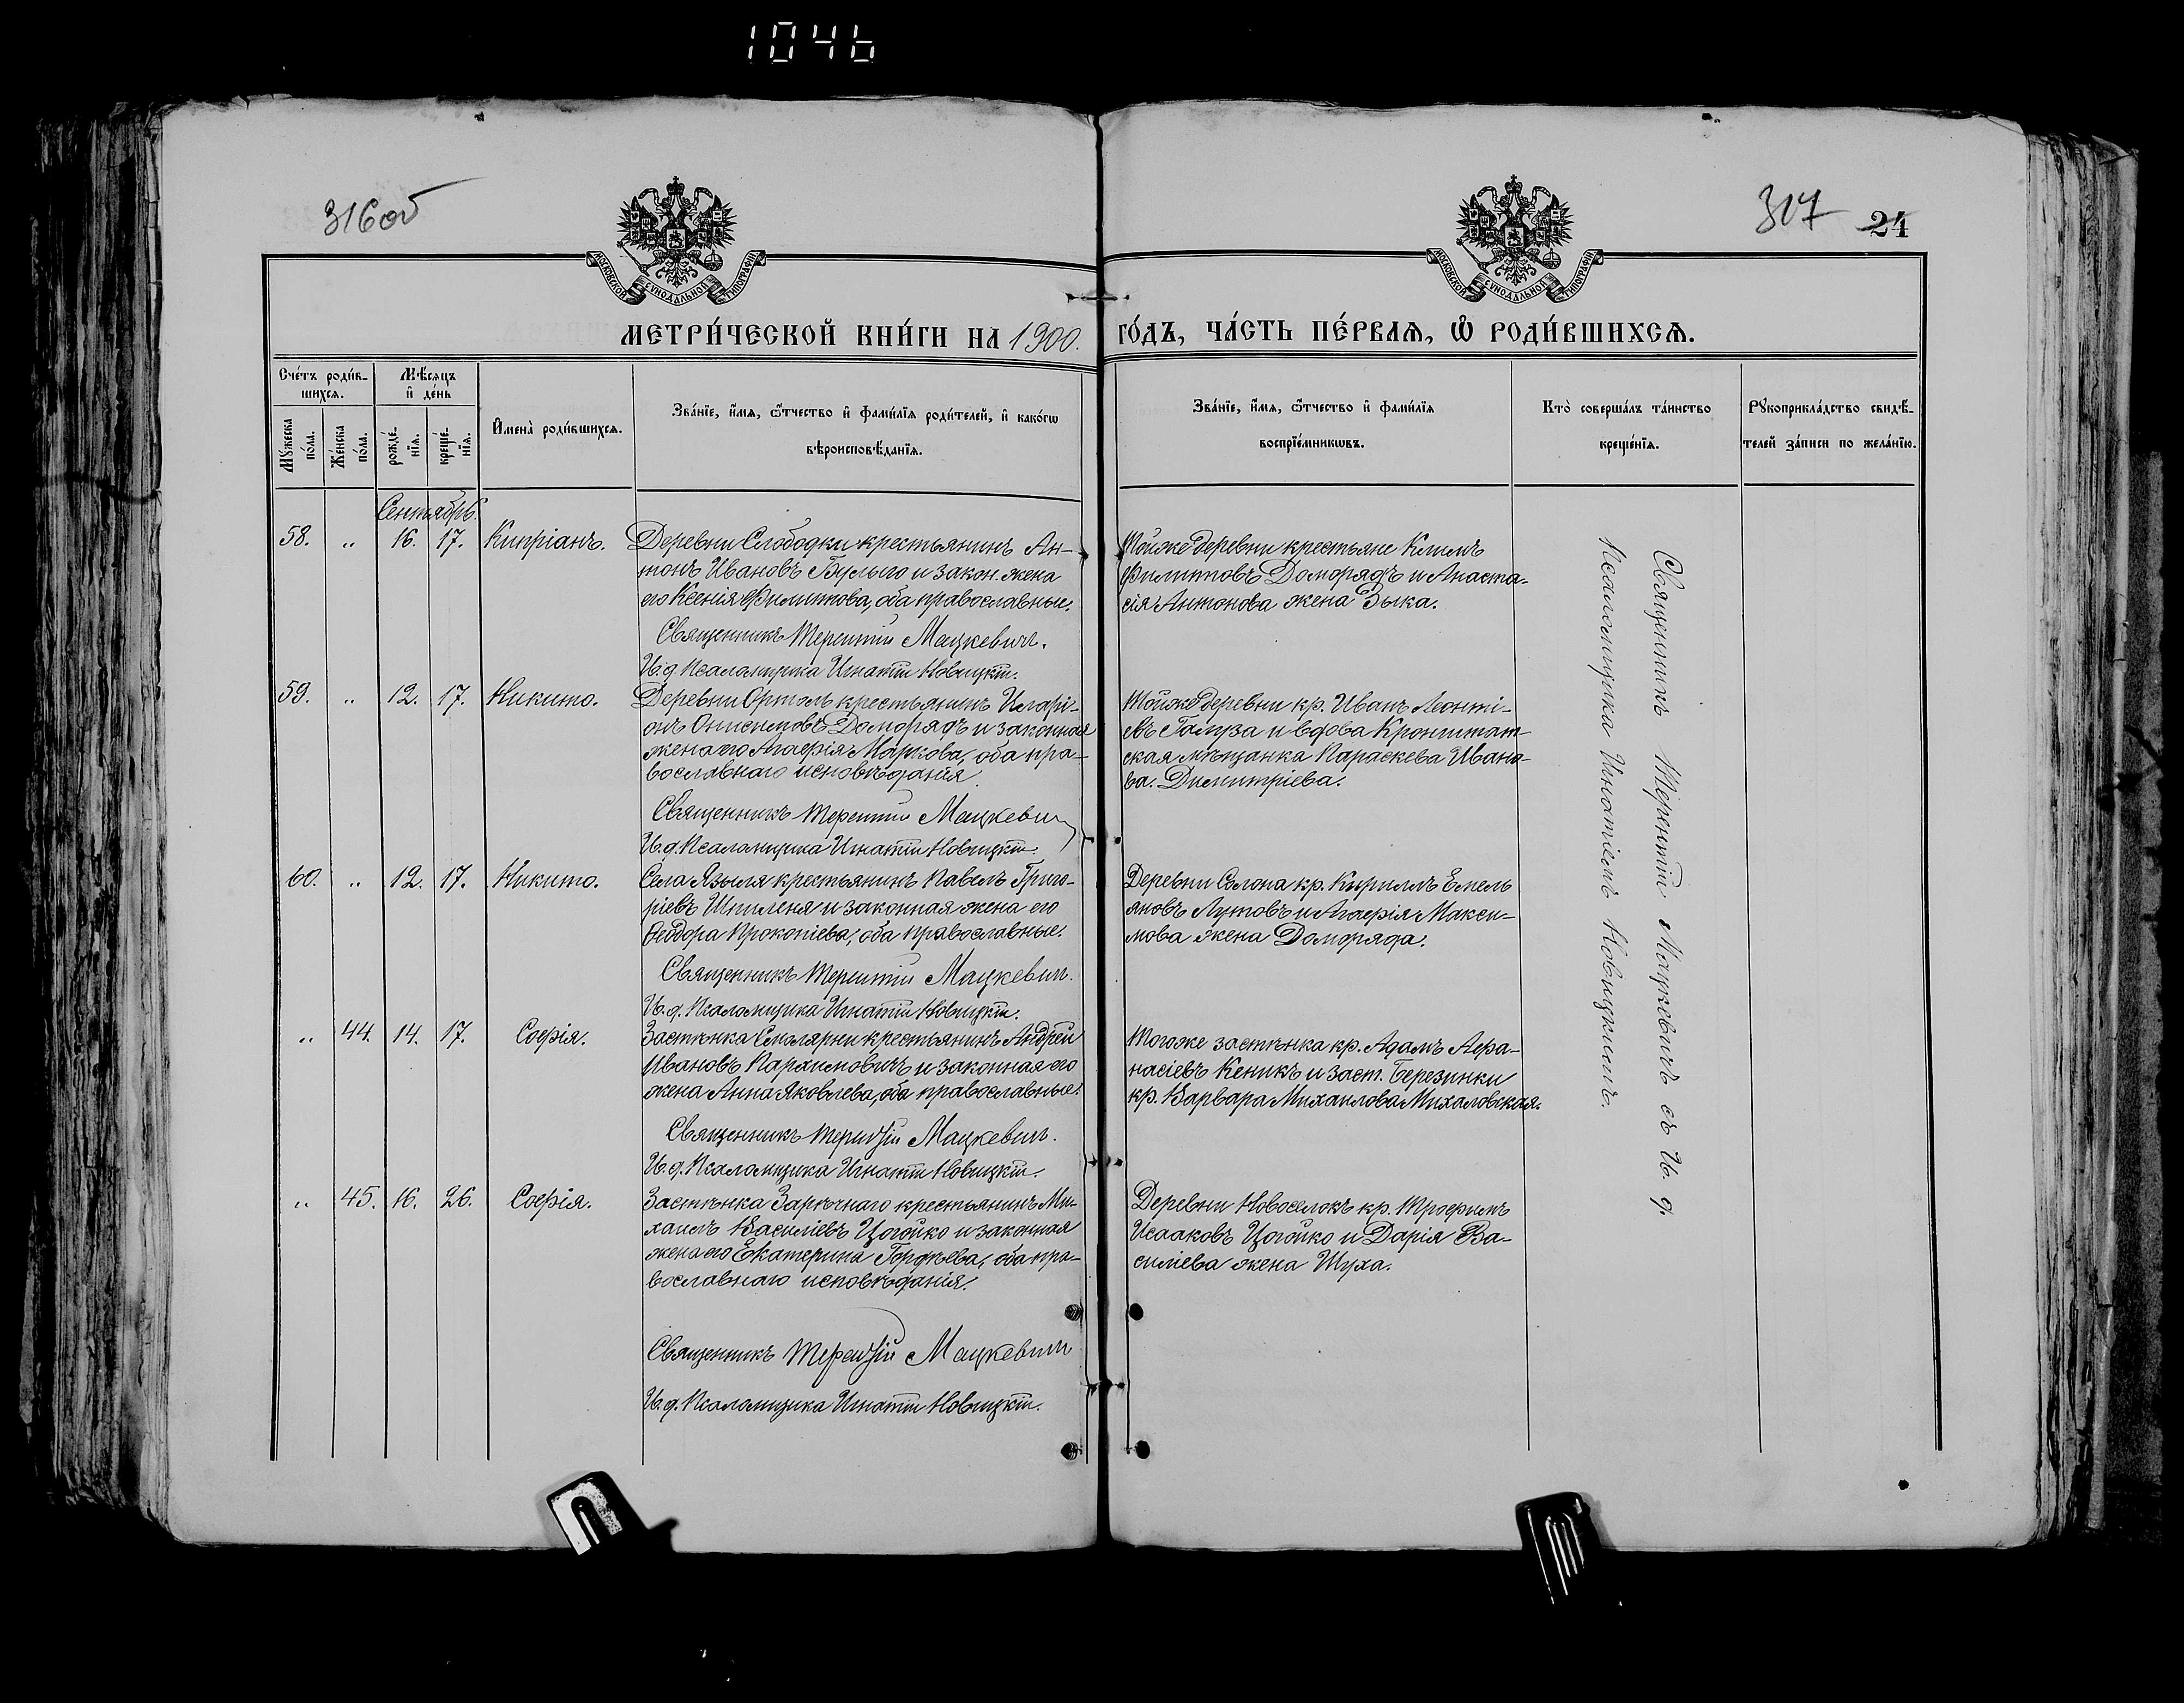 1046
316об
317 24
МОСКОВСКОЙ СѴНОДАЛЬНОЙ ТИПОГРАФІИ
МОСКОВСКОЙ СѴНОДАЛЬНОЙ ТИПОГРАФІИ
МЕТРИ́ЧЕСКОЙ КНИ́ГИ НА 1900. ГО́ДЪ, ЧА́СТЬ ПЕ́РВАѦ, Ѡ҆ РОДИ́ВШИХСѦ.
Сче́тъ роди́в-
шихсѧ.
Мѣ́сѧцъ
и҆ де́нь
Мꙋ́жеска по́ла.
Же́нска по́ла.
рожде́-нїѧ.
креще́-нїѧ.
И҆мена̀ роди́вшихсѧ.
Зва́нїе, и҆́мѧ, ѻ҆́тчество и҆ фами́лїѧ роди́телей, и҆ како́гѡ
вѣроисповѣ́данїѧ.
Зва́нїе, и҆́мѧ, ѻ҆́тчество и҆ фами́лїѧ
воспрїе́мникѡвъ.
Кто̀ соверша́лъ та́инство
креще́нїѧ.
Рꙋкоприкла́дство свидѣ́-
телей за́писи по жела́нїю.
Сентябрь.
58. „ 16. 17. Кипріанъ.
Деревни Слободки крестьянинъ Ан-
тонъ Ивановъ Булыго и закон. жена
его Ксенія Филиппова, оба православные.
Священникъ Терентій Мацкевич.
И. д. Псаломщика Игнатій Новицкій.
Тойже деревни крестьяне Климъ
Филипповъ Доморядъ и Анаста-
сія Антонова жена Зыка.
59. „ 12. 17. Никита.
Деревни Орталь крестьянинъ Иларі-
онъ Онисимовъ Доморядъ и законная
жена его Агафія Маркова, оба пра-
вославнаго исповѣданія.
Священникъ Терентій Мацкевич
И. д. Псаломщика Игнатій Новицкій.
Тойже деревни кр. Иванъ Леонті-
евъ Галуза и вдова Кронштат-
ская мѣщанка Параскева Ивано-
ва. Димитріева.
60. „ 12. 17. Никита.
Села Языля крестьянинъ Павелъ Григо-
ріевъ Шпиленя и законная жена его
Ѳеодора Прокопіева, оба православные.
Священникъ Терентій Мацкевич.
И. д. Псаломщика Игнатій Новицкій.
Деревни Солона кр. Кириллъ Емель
яновъ Лутовъ и Агафія Макси-
мова жена Доморяда.
„ 44. 14. 17. Софія.
Застѣнка Смолярни крестьянинъ Андрей
Ивановъ Пархимовичъ и законная его
жена Анна Яковлева, оба православные.
Священникъ Терентій Мацкевич.
И. д. Псаломщика Игнатій Новицкій.
Тогоже застѣнка кр. Адамъ Афа-
насіевъ Кеникъ и заст. Березинки
кр. Варвара Михаилова Михаловская.
„ 45. 16. 26. Софія.
Застѣнка Зарѣчнаго крестьянинъ Ми-
хаилъ Василіевъ Цогойко и законная
жена его Екатерина Гордѣева, оба пра-
вославнаго исповѣданія.
Священникъ Терентій Мацкевич
И. д. Псаломщика Игнатій Новицкій.
Деревни Новоселокъ кр. Трофимъ
Исааковъ Цогойко и Дарія Ва-
силіева жена Шуха.
Священникъ Терентій Мацкевичъ съ И. д.
Псаломщика Игнатіемъ Новицкимъ.